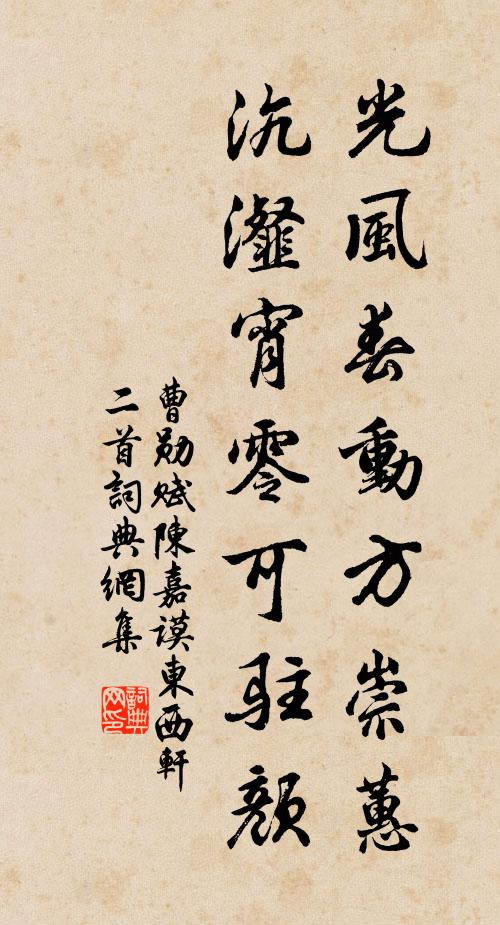 光風春動方崇蕙
沆瀣宵零可駐顏
曹勛賦陳嘉謨東西軒
二首詞典網集
詞典網印